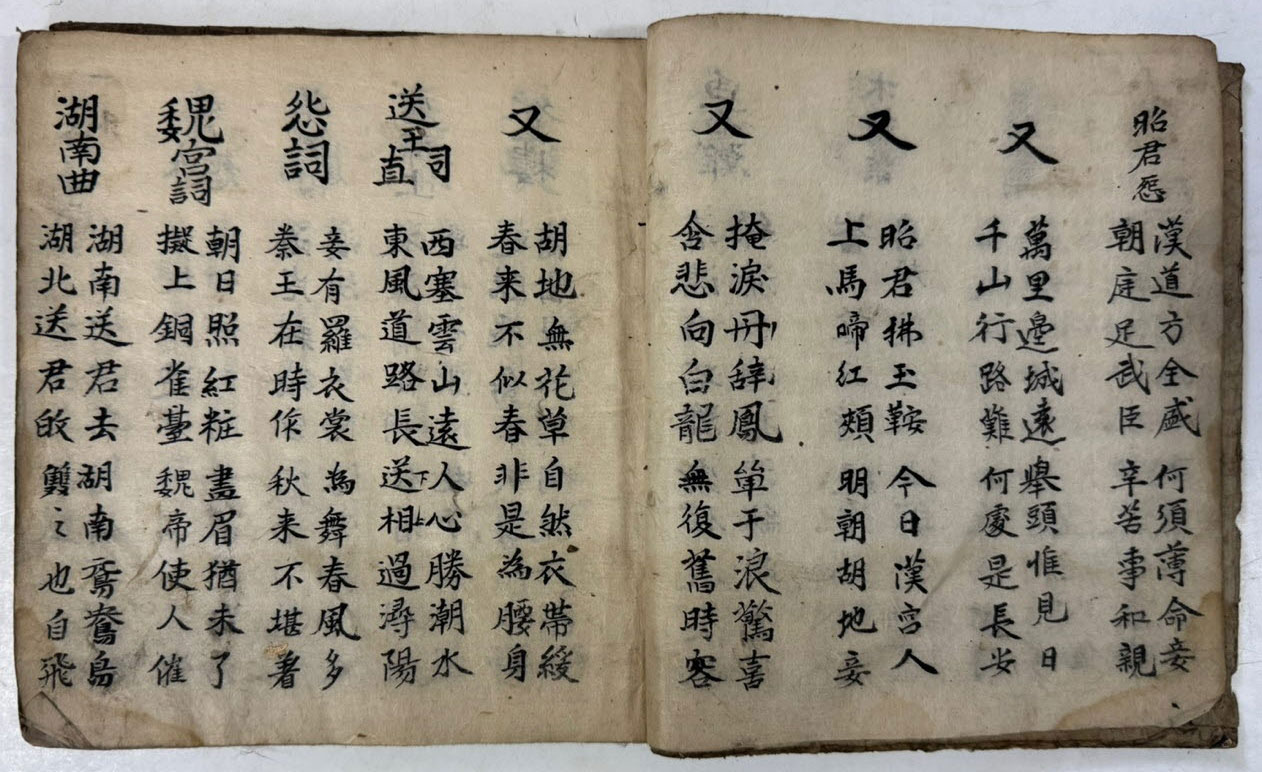 昭君怨
漢道方全盛 何須薄命妾
朝庭足武臣 辛苦事和親
又
萬里邊城遠 擧頭惟見日
千山行路難 何處是長安
又
昭君拂玉鞍 今日漢宮人
上馬啼紅頰 明朝胡地妾
又
掩淚丹辞鳳 单于浪驚喜
含悲向白龍 無復舊時容
又
胡地無花草 自然衣帶緩
春来不似春 非是為腰身
送王司直
西塞雲山遠 人心勝潮水
東風道路長 送下相上過潯陽
怨詞
妾有羅衣裳 為舞春風多
秦王在時作 秋来不堪著
魏宮詞
朝日照紅粧 畫眉猶未了
擬上銅雀臺 魏帝使人催
湖南曲
湖南送君去 湖南鴛鴦鳥
湖北送君皈 雙〻也自飛